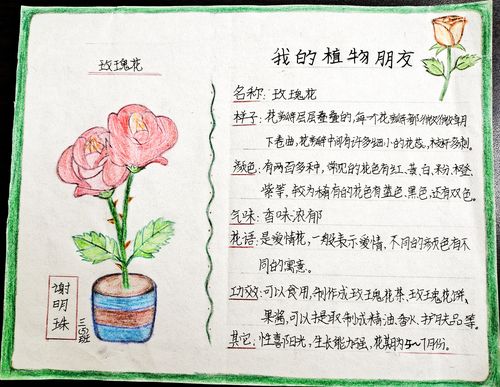 玫瑰花
谢明珠
三(5)班
我的植物朋友
名称:玫瑰花
样子:花瓣层层叠叠的,每个花瓣都微微朝
下卷曲,花瓣中间有许多细小的花蕊,枝杆多刺。
颜色:有两百多种,常见的花色有红、黄、白、粉、橙、
紫等,较为稀有的花色有蓝色、黑色,还有双色。
气味:香味浓郁
花语:是爱情花,一般表示爱情,不同的颜色有不
同的寓意。
功效:可以食用,制作成玫瑰花茶、玫瑰花饼、
果酱,可以提取制成精油、香水、护肤品等。
其它:性喜阳光,生长能力强,花期为5~7月份。